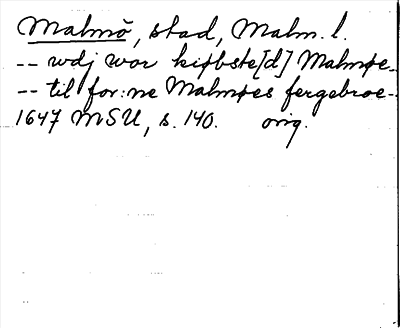 Malmö, stad, Malm. l.
-- wdj wor kiøbste[d] Malmøe --
-- til for:ne Malmøes fergebroe --
1647 MSU, s. 140. orig.